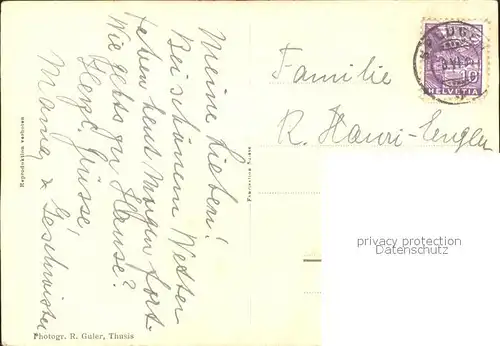 Meine Lieben!
Bei schönem Wetter
fahren heut Morgen fort.
Wie gehts zu Hause?
Herzl. Grüsse,
Mama & Geschwister
Familie
R. Hauri-Engler
10
HELVETIA
privacy protection
Datenschutz
Reproduktion verboten
Photogr. R. Guler, Thusis